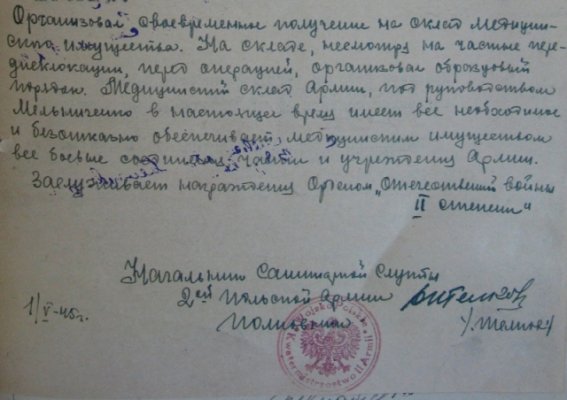 Организовал своевременное получение на склад медицин-
ского имущества. На складе, несмотря на частые пере-
дислокации, перед операцией, организовал образцовый
порядок. Медицинский склад Армии, под руководством
Мельниченко в настоящее время имеет все необходимое
и безотказно обеспечивает медицинским имуществом
все боевые соединения, части и учреждения Армии.
Заслуживает награждения Орденом „Отечественной войны
II степени"
Начальник Санитарной Службы
2ой Польской Армии
Полковник
1/V-45г.
Wojsko Polskie
Kwatermistrzostwo II Armii